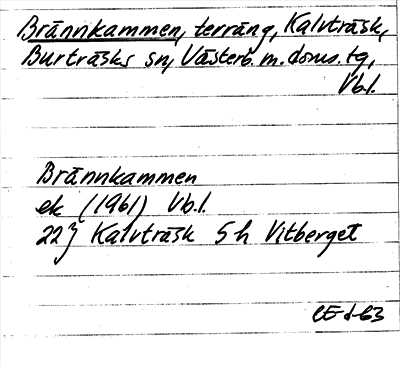 Brännkammen, terräng, Kalvträsk,
Burträsks sn, Västerb. m. doms. tg,
Vbl.
Brännkammen
ek (1961) Vbl.
22J Kalvträsk 5h Vitberget